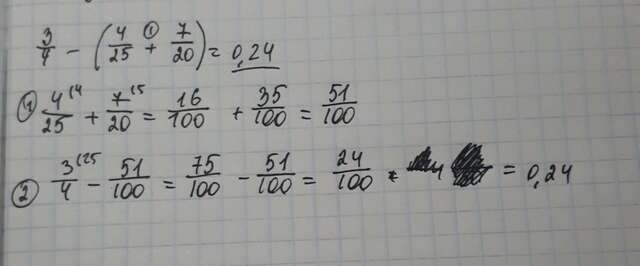 3/4 - (4/25 +① 7/20) = 0,24
① 4/25 (4 + 7/20 (5 = 16/100 + 35/100 = 51/100
② 3/4 (25 - 51/100 = 75/100 - 51/100 = 24/100 = 0,24